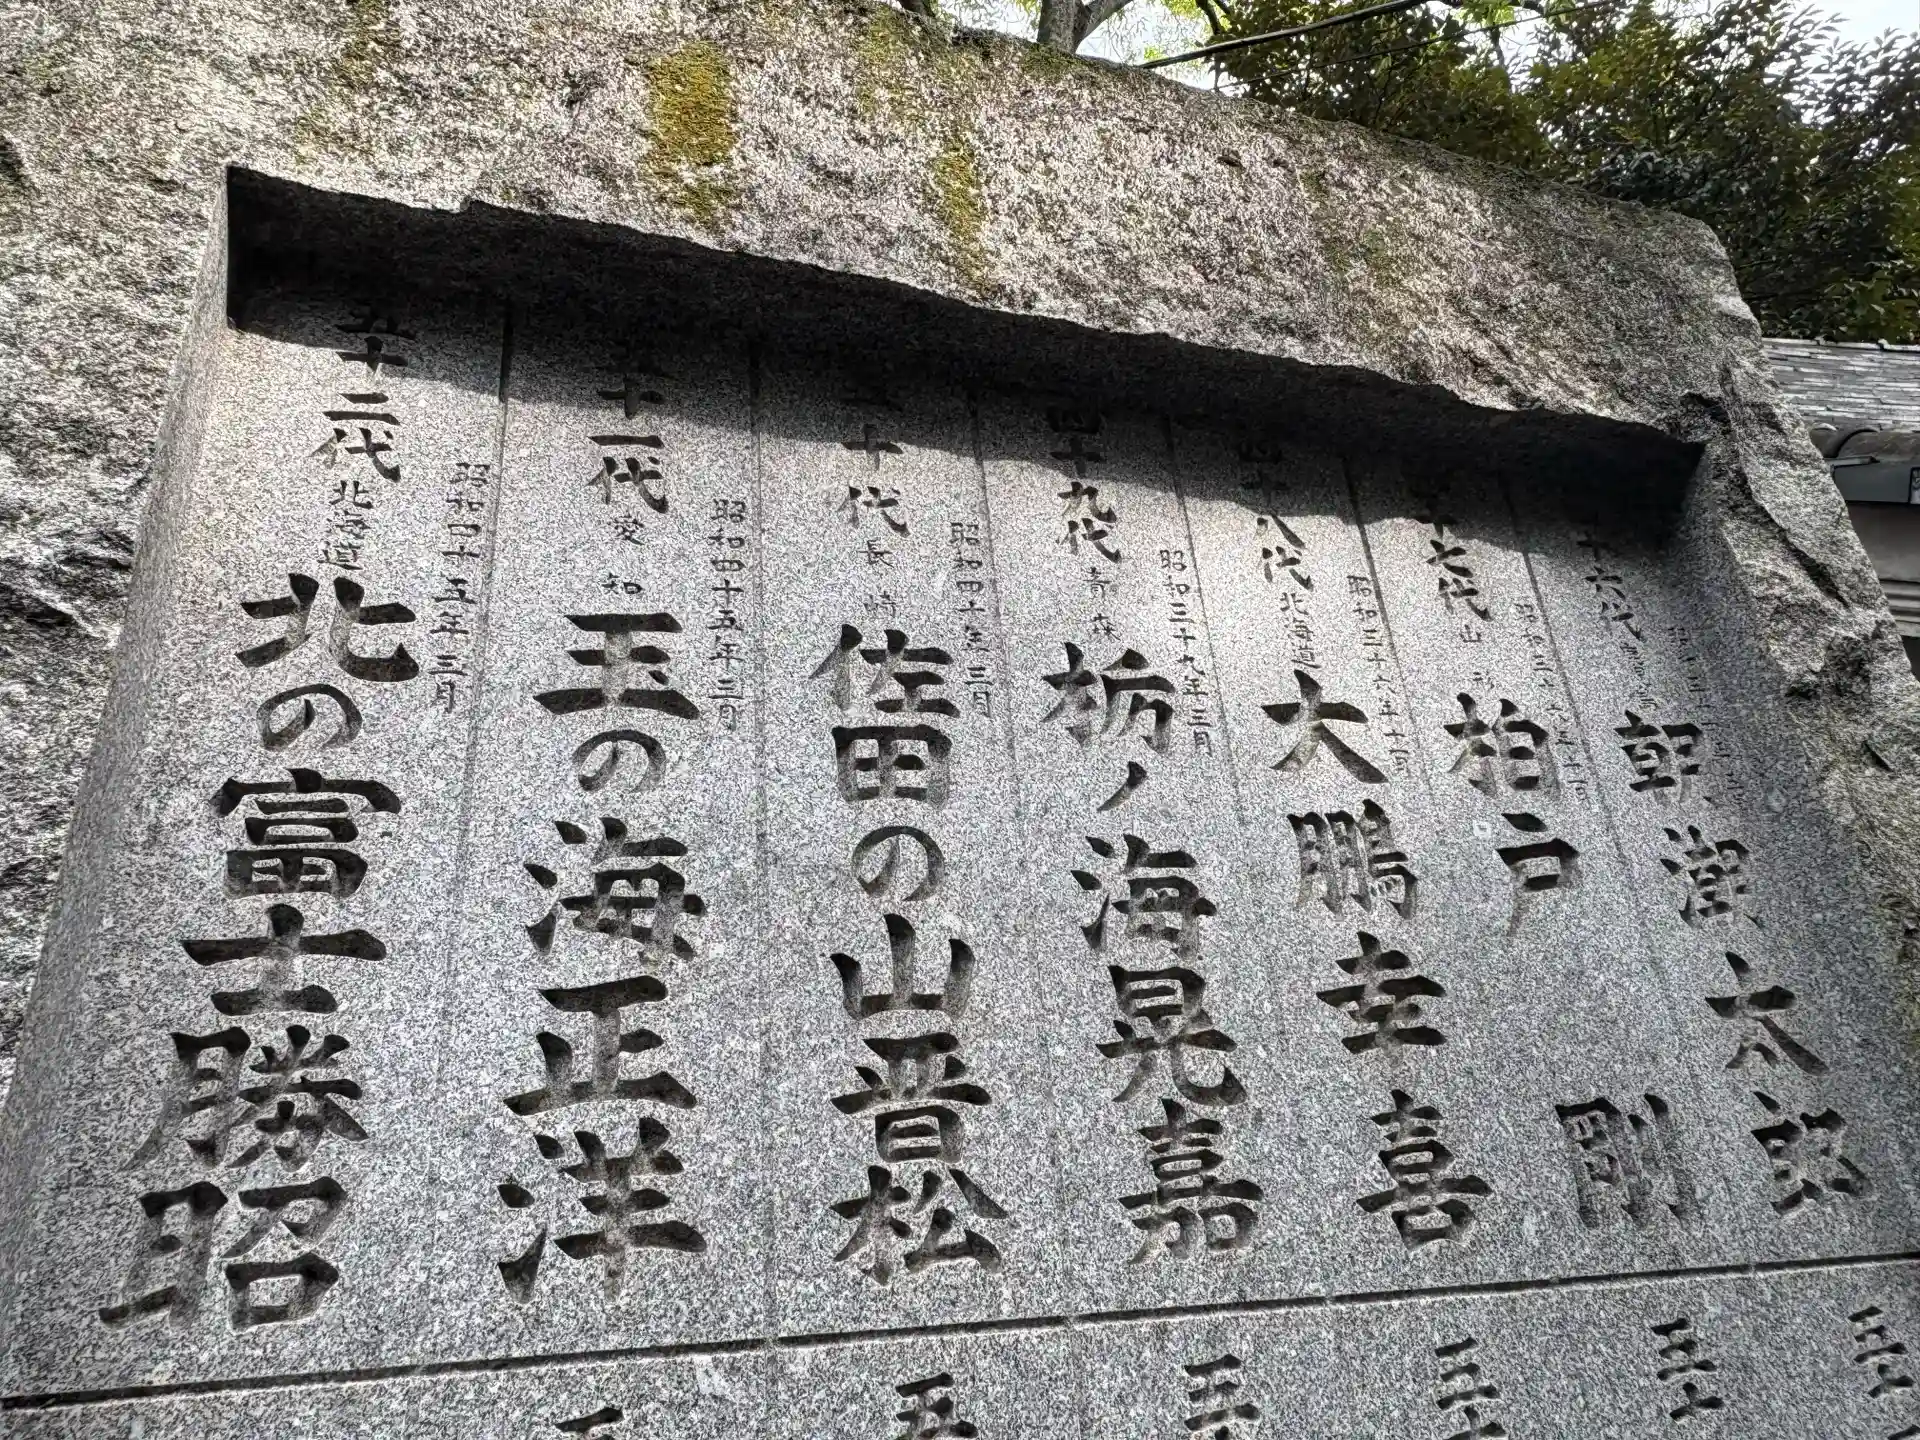 十六代
朝潮太郎
十七代 山形
柏戸剛
昭和三十六年十一月
四十八代 北海道
大鵬幸喜
昭和三十六年十一月
四十九代 青森
栃ノ海晃嘉
昭和三十九年三月
五十代 長崎
佐田の山晋松
昭和四十年三月
十一代 愛知
玉の海正洋
昭和四十五年三月
五十二代 北海道
北の富士勝昭
昭和四十五年三月
三十
三十
三十
三
五